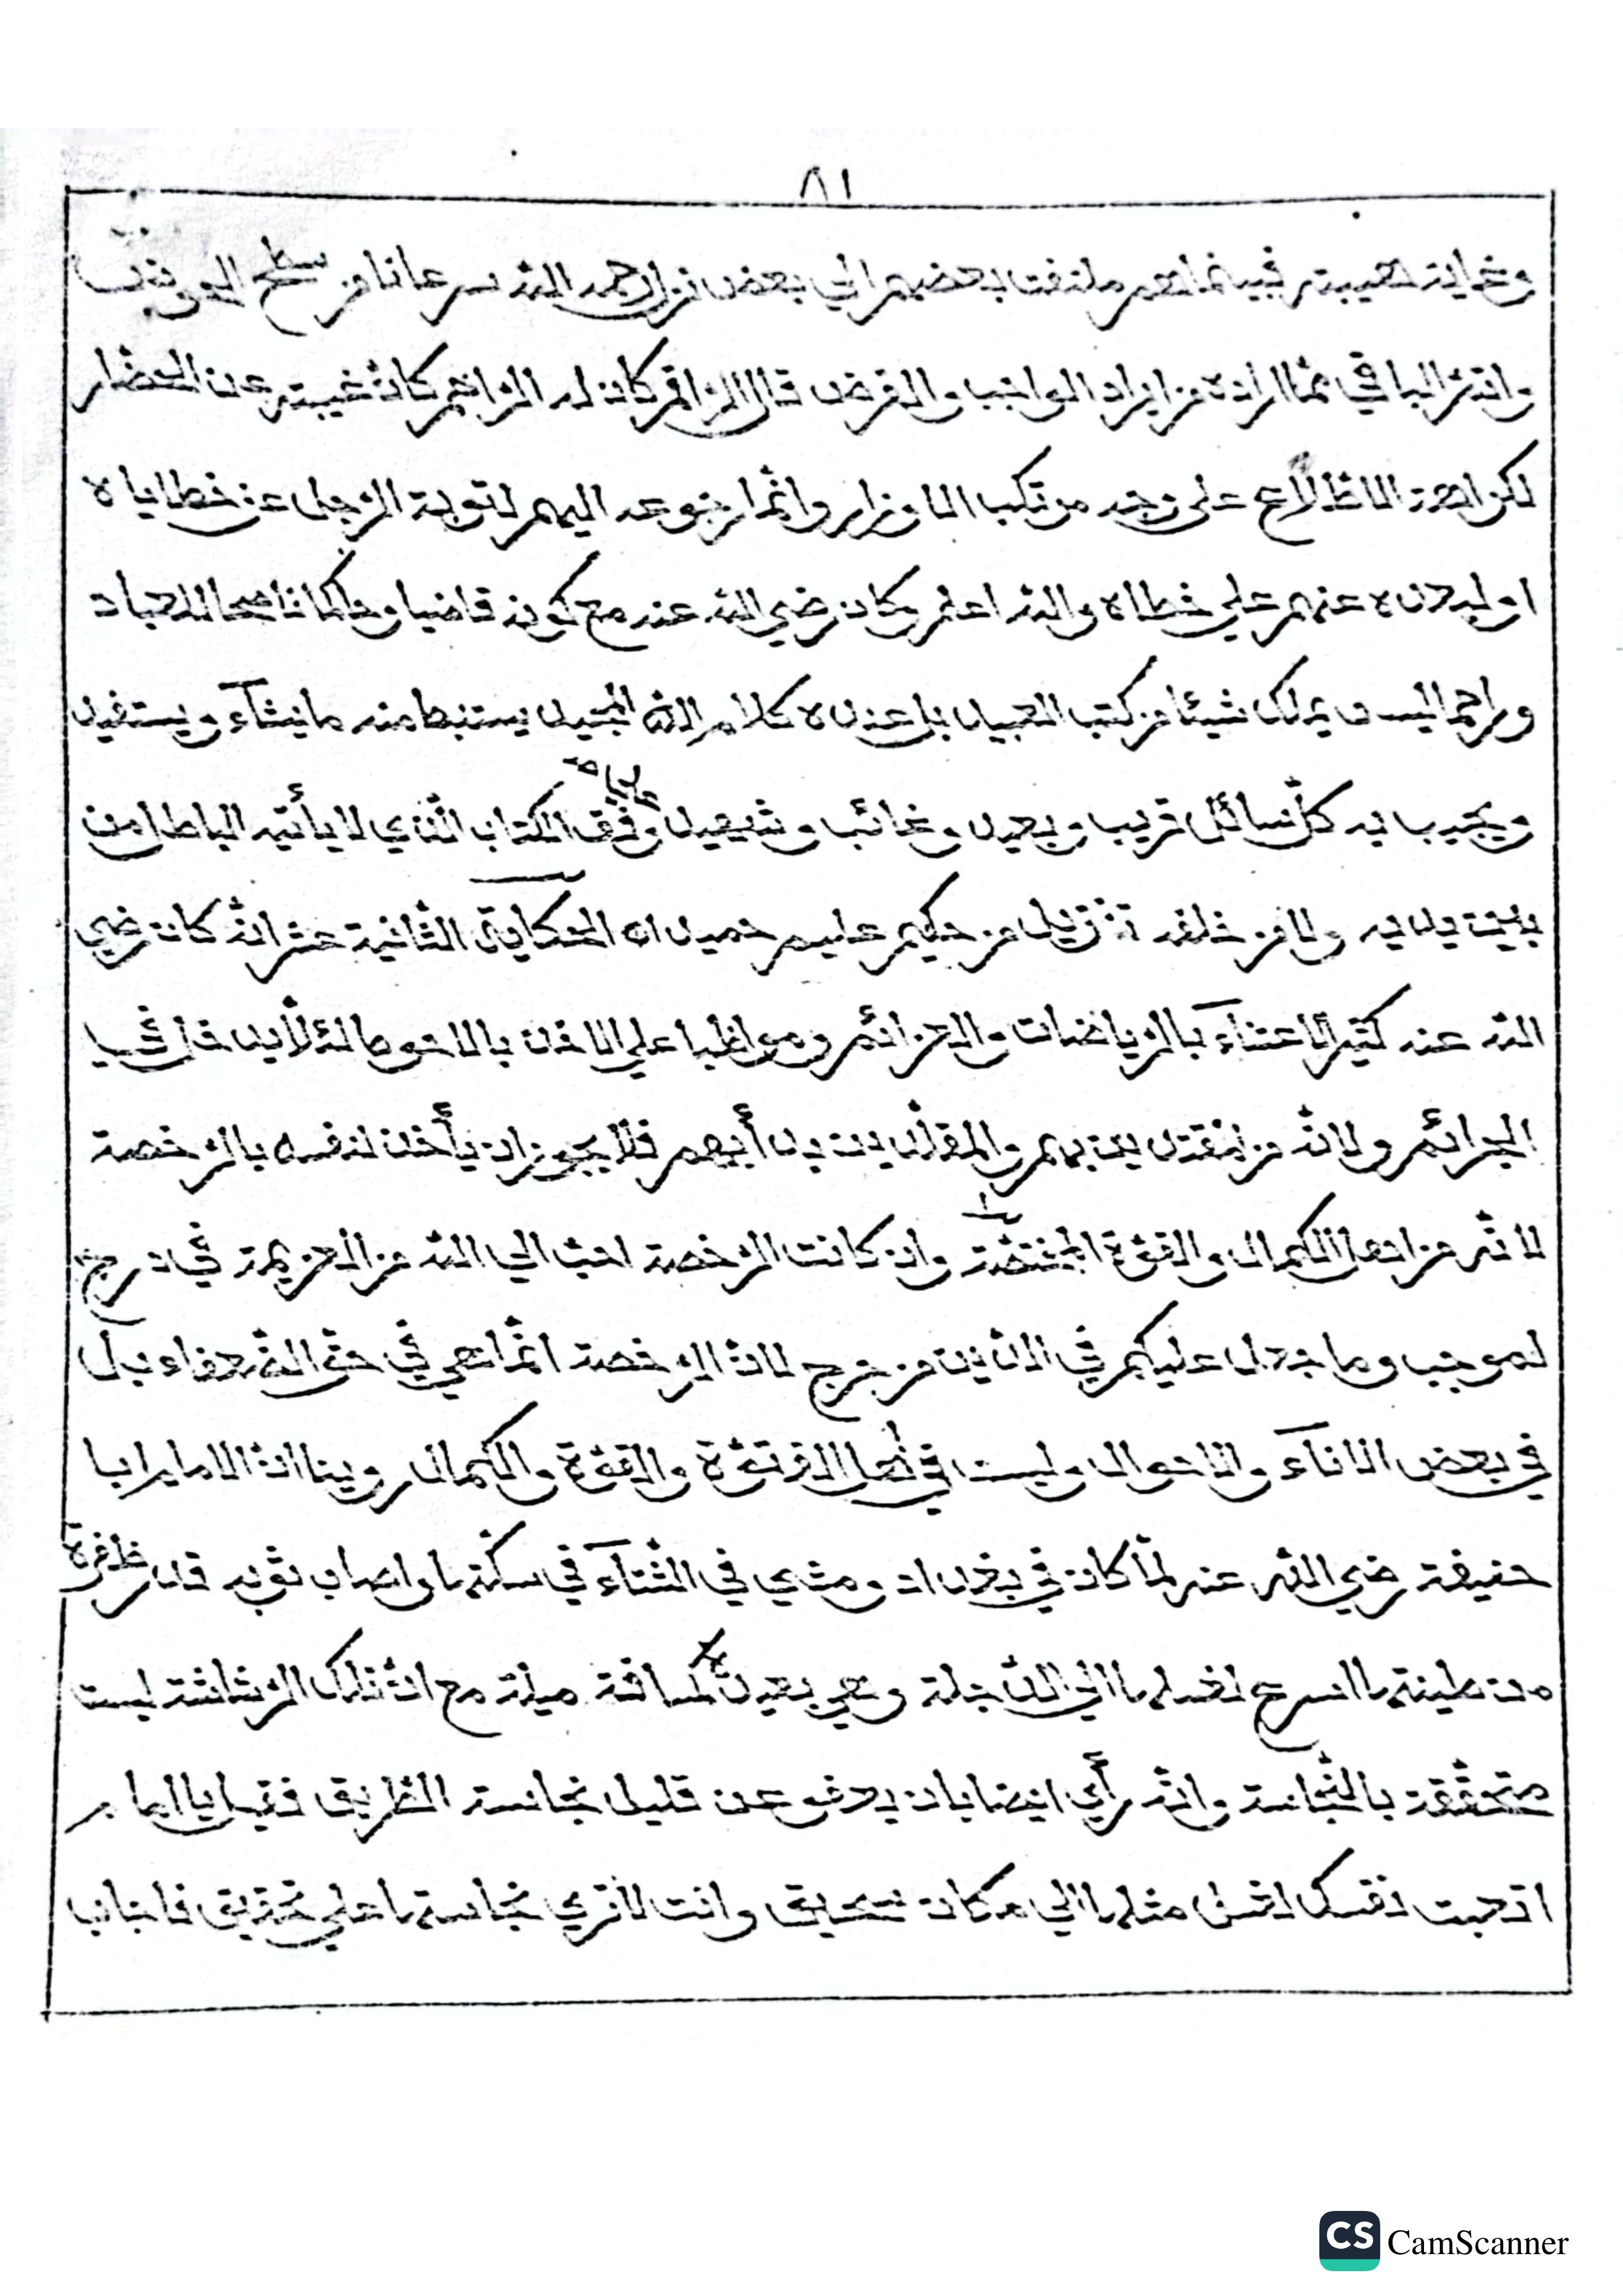 ٨١
وغاية هيبته فبينما هم ملتفت بعضهم الي بعض نزل رحمه الله سرعانا من سطح
واتمّ الباقي ممّا اراده من ايراد الواجب والفرض قال الرّاقم كان له الرّاحم كانّ غيبته عن الحضار
لكراهة الاطّلاع على وجه مرتكب الاوزار وانّما رجوعه اليهم لتوبة الرّجل عن خطاياه
او لبعده عنهم علي خطاه والله اعلم وكان رضي الله عنه مع كونه قاضيا وحاكما ناصحا للعباد
وراحما ليس يملك شيئا من كتب العبيد بل عنده كلام الله المجيد يستنبط منه ما يشآء ويستفيد
ويجيب به كلّ سائل قريب وبعيد وغائب وشهيد وفّق الكتاب الّذي لا يأتيه الباطل من
بين يديه ولا من خلفه تنزيل من حكيم عليم حميد اه الحكاية الثّانية عشر انّه كان رضي
الله عنه كثير الاعتنآء بالرّياضات والعزائم ومواظبا علي الاخذ بالاحوط لئلّا يدخل شيا
الجرائم ولانّه من المقتدين بهم والمقلّدين بدأبهم فلا يجوز ان يأخذ لنفسه بالرّخصة
لانّه من اهل الكمال والقوّة المختصّة وان كانت الرّخصة احبّ الي الله من العزيمة في درج
لموجب وما جعل عليكم في الدّين من حرج لانّ الرّخصة انّما هي في حقّ الضّعفاء بل
في بعض الاناء والاحوال وليست في اهل الفرتوّة والقوّة والكمال روينا انّ الامام ابا
حنيفة رضي الله عنه لمّا كان في بغداد ومشي في الشّتآء في سكّتها واصاب ثوبه قدر ظفرة
من طينتها اسرع لغسلها الي الدّجلة وهي بعيدة لمسافة ميلة مع انّ تلك الرّشاشة ليست
متحقّقة بالنّجاسة وانّه رأي ايضا بان يعفو عن قليل نجاسة الطّريق فقيل يا امام
اتعبت نفسك لغسل مثلها الي مكان سحيق وانت لا تري نجاستها علي تحقيق فاجاب
CS CamScanner